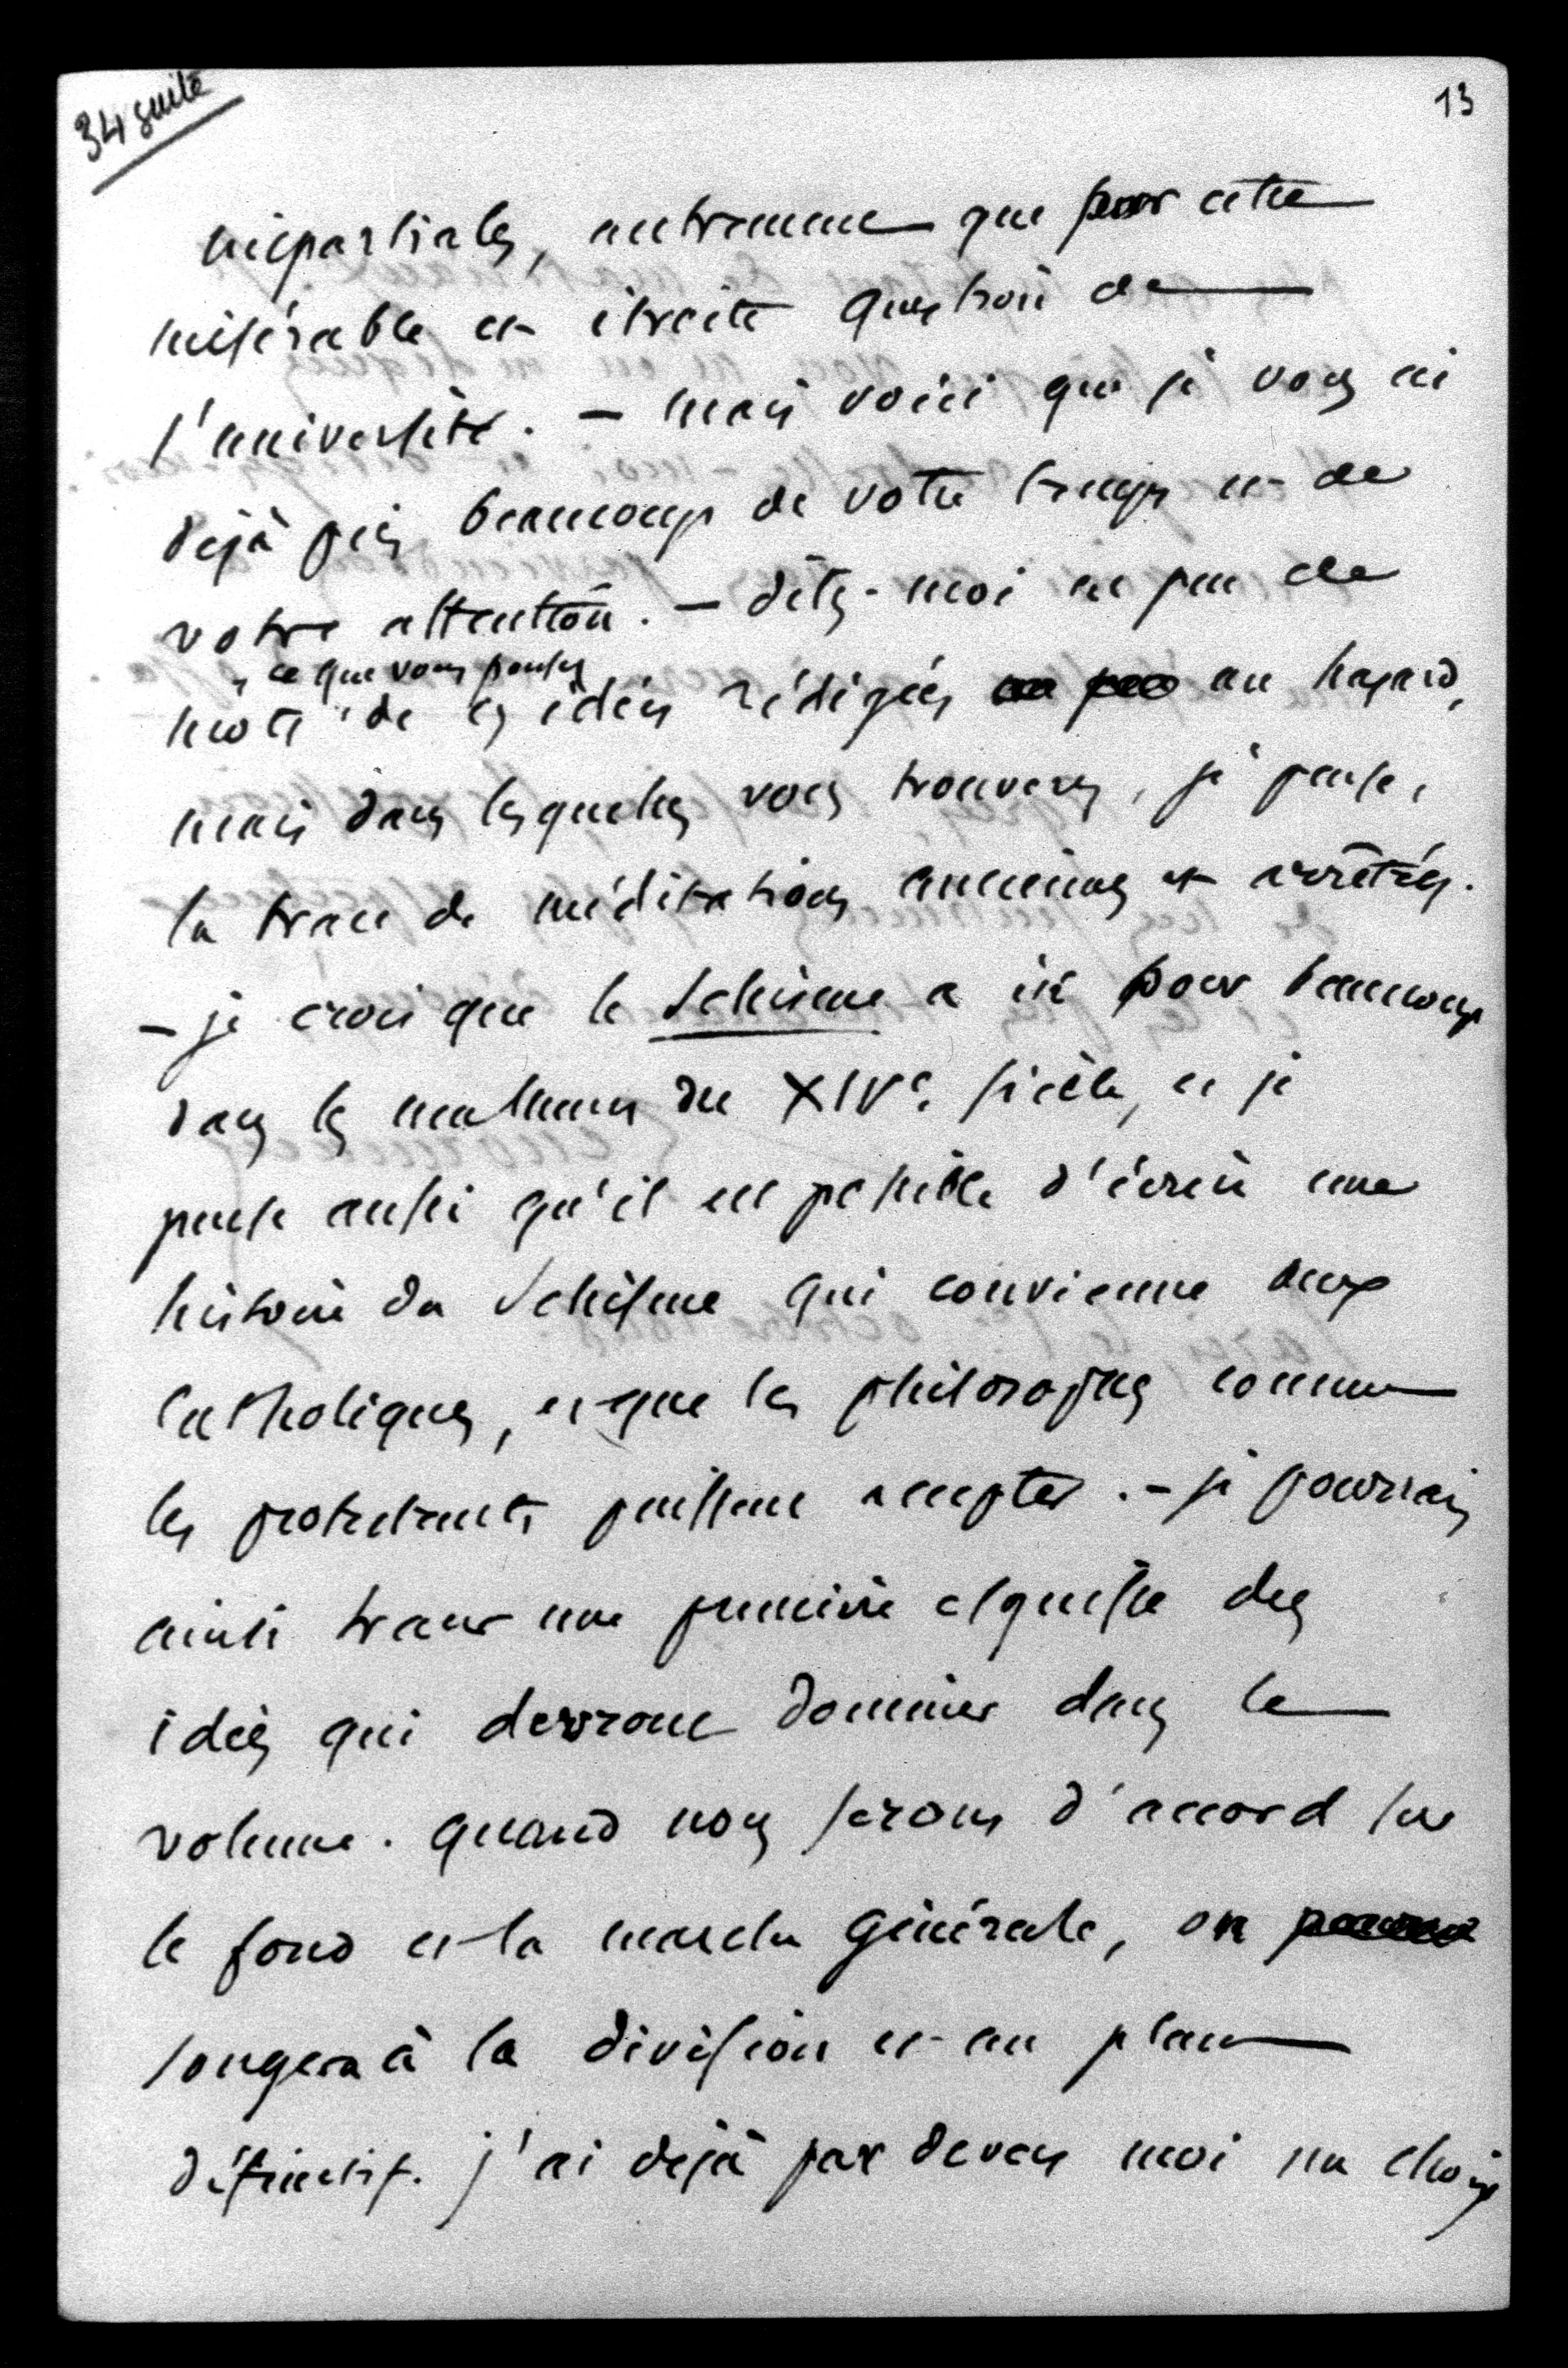 34 suite
13
impartiales, autrement que pour cette
misérable et étroite question de
l'université. – mais voici que je vous ai
déjà pris beaucoup de votre temps et de
votre attention. – dites-moi en peu de
ce que vous pensez
mots de ces idées rédigées un peu au hasard,
mais dans lesquelles vous trouverez, je pense,
la trace de méditations anciennes et arrêtées.
– je crois que le Schisme a été pour beaucoup
dans les malheurs du XIVe. siècle, et je
pense aussi qu'il est possible d'écrire une
histoire du Schisme qui convienne aux
Catholiques, et que les philosophes comme
les protestants puissent accepter. – je pourrais
ainsi tracer une première esquisse des
idées qui devront dominer dans le
volume. quand nous serons d'accord sur
le fond et la marche générale, on
songera à la division et au plan
définitif. j'ai déjà par devers moi un choix